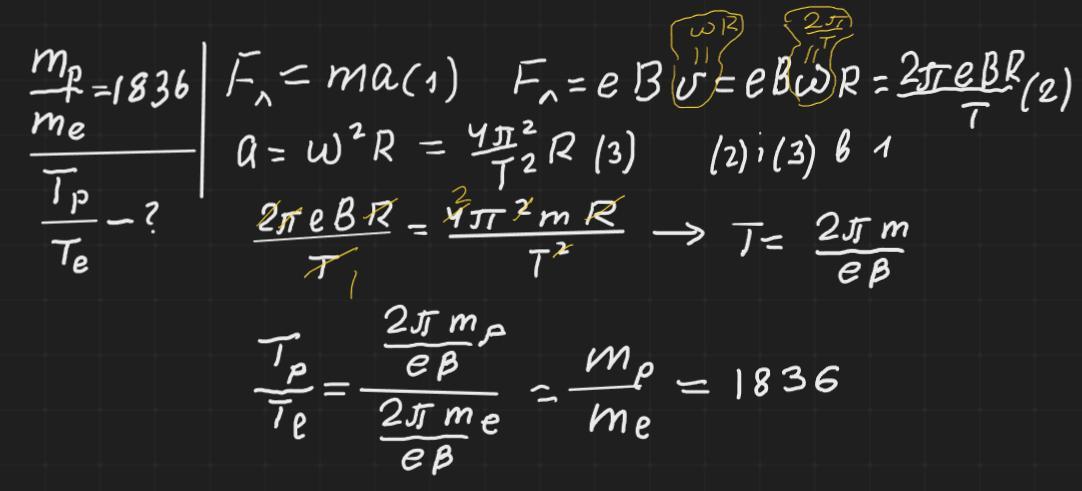 m_p/m_e = 1836
T_p/T_e - ?
ωR
||
2π/T
||
F_л = ma (1) F_л = e B υ = e B ω R = 2π e B R / T (2)
a = ω² R = 4π²/T² R (3) (2) і (3) в 1
2π e B R / T = 4π² m R / T² → T = 2π m / e B
2
1
T_p/T_e = (2π m_p / e B) / (2π m_e / e B) = m_p/m_e = 1836